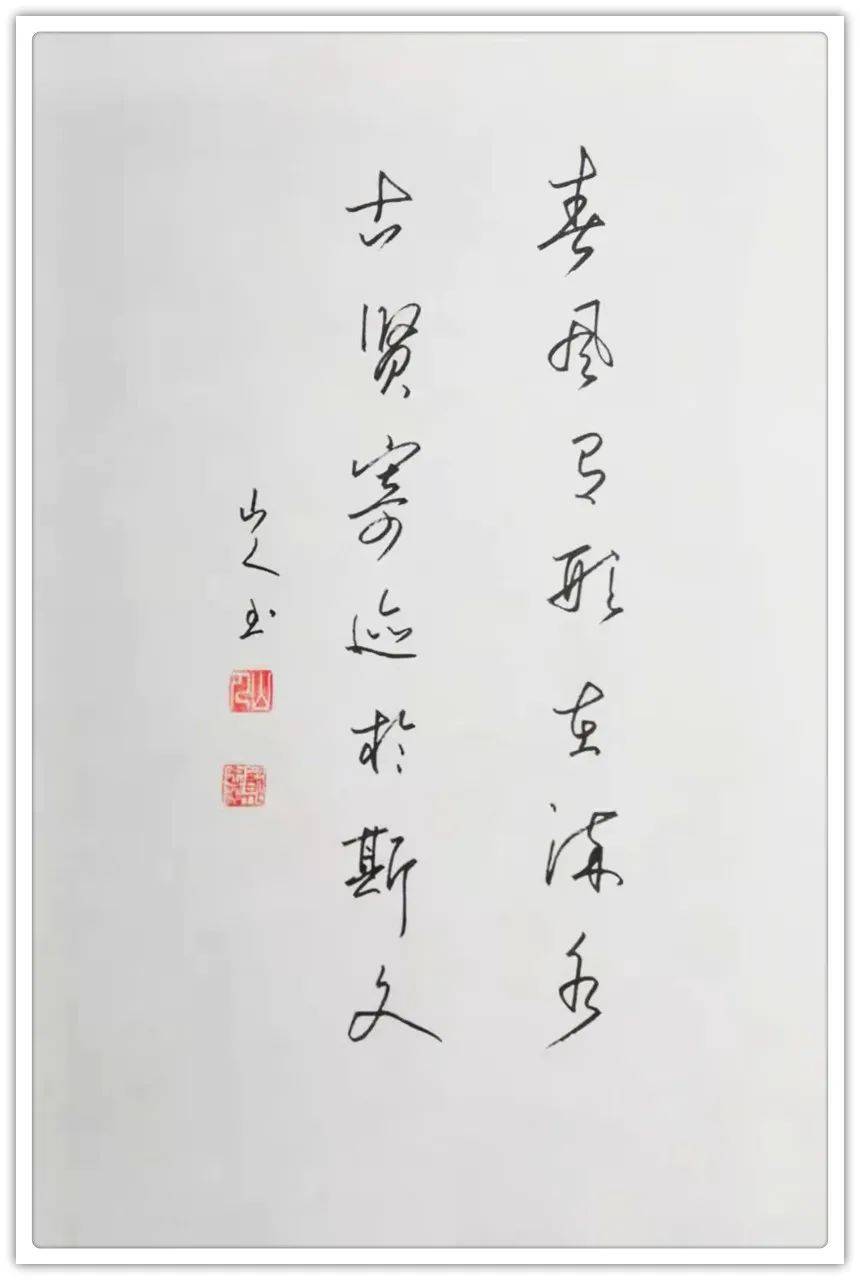 春风有形在流水
古贤寄迹于斯文
山人书